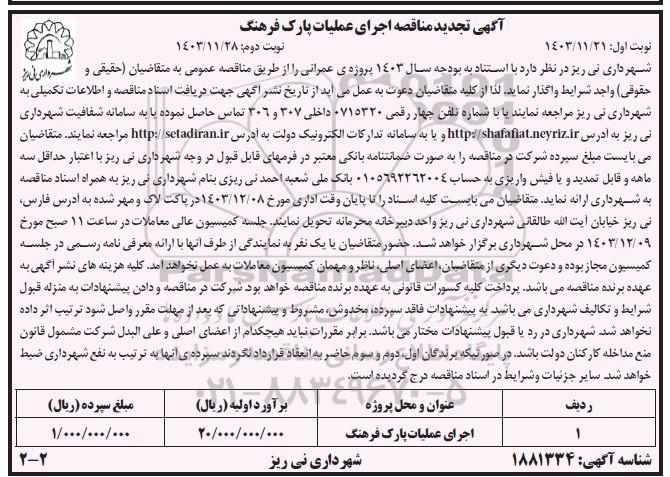 آگهی تجدید مناقصه اجرای عملیات پارک فرهنگ
نوبت اول: ۱۴۰۳/۱۱/۲۱ نوبت دوم: ۱۴۰۳/۱۱/۲۸
شهرداری نی ریز
شهرداری نی ریز در نظر دارد با استناد به بودجه سال ۱۴۰۳ پروژه ی عمرانی را از طریق مناقصه عمومی به متقاضیان (حقیقی و
حقوقی) واجد شرایط واگذار نماید. لذا از کلیه متقاضیان دعوت به عمل می آید از تاریخ نشر آگهی جهت دریافت اسناد مناقصه و اطلاعات تکمیلی به
شهرداری نی ریز مراجعه نمایند یا با شماره تلفن چهار رقمی ۰۷۱۵۳۲۰ داخلی ۳۰۷ و ۳۰۶ تماس حاصل نموده یا به سامانه شفافیت شهرداری
نی ریز به آدرس http://shafafiat.neyriz.ir و یا به سامانه تدارکات الکترونیک دولت به آدرس http://setadiran.ir مراجعه نمایند. متقاضیان
می بایست مبلغ سپرده شرکت در مناقصه را به صورت ضمانتنامه بانکی معتبر در فرمهای قابل قبول در وجه شهرداری نی ریز با اعتبار حداقل سه
ماهه و قابل تمدید و یا فیش واریزی به حساب ۰۱۰۵۶۹۲۲۶۲۰۰۴ بانک ملی شعبه احمد نی ریزی بنام شهرداری نی ریز به همراه اسناد مناقصه
به شهرداری ارائه نماید. متقاضیان می بایست کلیه اسناد را تا پایان وقت اداری مورخ ۱۴۰۳/۱۲/۰۸ در پاکت لاک و مهر شده به آدرس فارس،
نی ریز خیابان آیت الله طالقانی شهرداری نی ریز واحد دبیرخانه محرمانه تحویل نمایند. جلسه کمیسیون عالی معاملات در ساعت ۱۱ صبح مورخ
۱۴۰۳/۱۲/۰۹ در محل شهرداری برگزار خواهد شد. حضور متقاضیان یا یک نفر به نمایندگی از طرف آنها با ارائه معرفی نامه رسمی در جلسه
کمیسیون مجاز بوده و دعوت دیگری از متقاضیان، اعضای اصلی، ناظر و مهمان کمیسیون معاملات به عمل نخواهد آمد. کلیه هزینه های نشر آگهی به
عهده برنده مناقصه می باشد. پرداخت کلیه کسورات قانونی به عهده برنده مناقصه خواهد بود. شرکت در مناقصه و دادن پیشنهادات به منزله قبول
شرایط و تکالیف شهرداری می باشد. به پیشنهادات فاقد سپرده، مخدوش، مشروط و پیشنهاداتی که بعد از مهلت مقرر واصل شود ترتیب اثر داده
نخواهد شد. شهرداری در رد یا قبول پیشنهادات مختار می باشد. برابر مقررات نباید هیچکدام از اعضای اصلی و علی البدل شرکت مشمول قانون
منع مداخله کارکنان دولت باشد. در صورتیکه برندگان اول، دوم و سوم حاضر به انعقاد قرارداد نگردند سپرده ی آنها به ترتیب به نفع شهرداری ضبط
خواهد شد. سایر جزئیات و شرایط در اسناد مناقصه درج گردیده است.
۰۲۱-۸۸۳۴۹۶۷۰-۵
ردیف عنوان و محل پروژه برآورد اولیه (ریال) مبلغ سپرده (ریال)
۱ اجرای عملیات پارک فرهنگ ۲۰/۰۰۰/۰۰۰/۰۰۰ ۱/۰۰۰/۰۰۰/۰۰۰
شناسه آگهی: ۱۸۸۱۳۳۴ شهرداری نی ریز ۲-۲